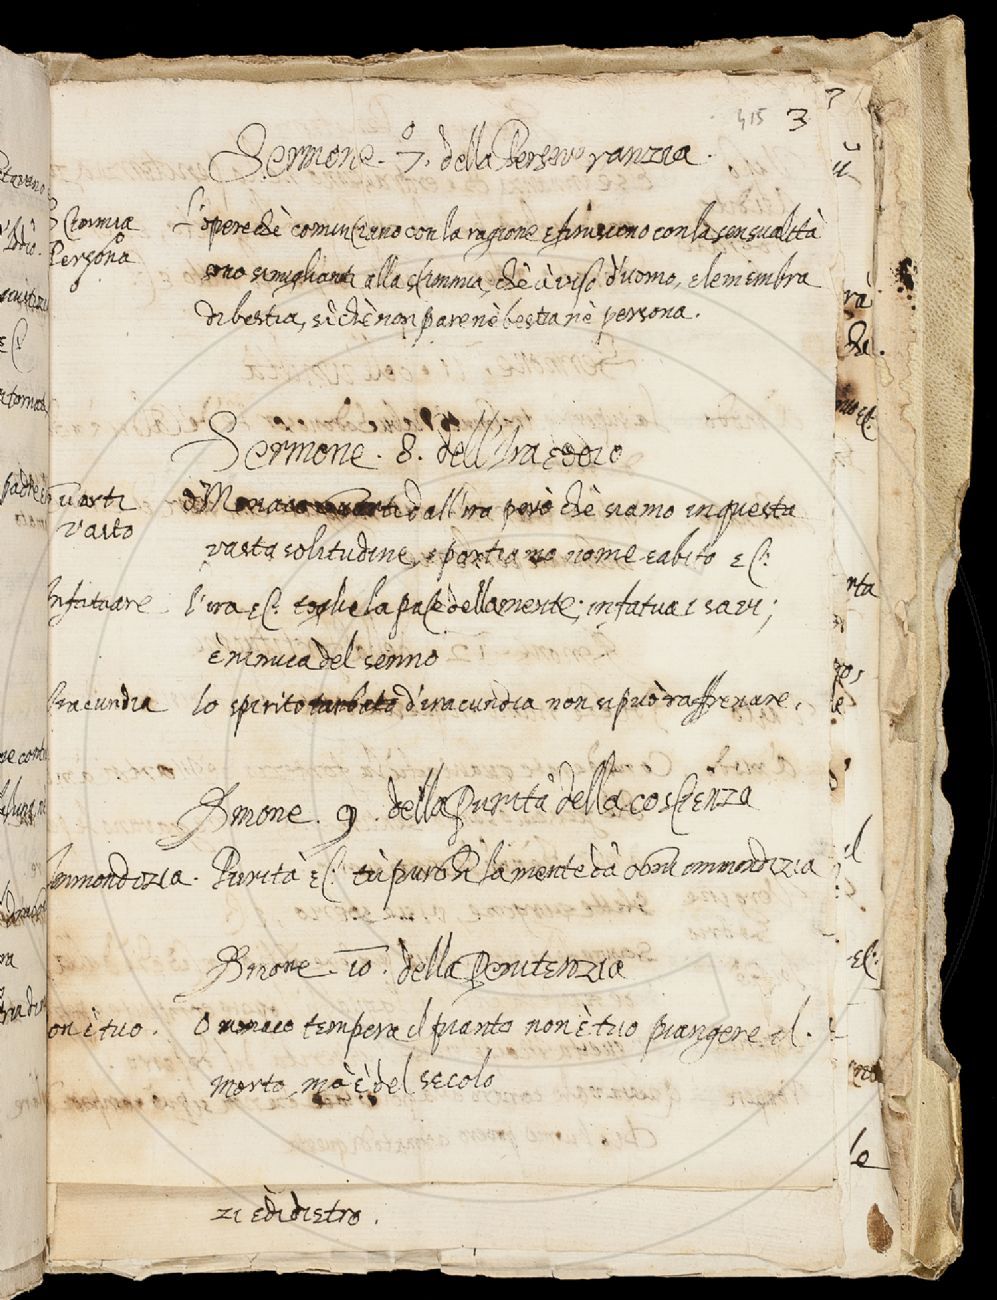 415 3
Sermone. 7.º della Perseveranzia.
Scimmia L'opere chè cominciano con la ragione e finiscono con la sensualità
Persona sono simiglianti alla scimmia, chè à viso d'uomo, e le membra
di bestia, sì chè non pare nè bestia nè persona.
Sermone. 8. dell'Ira ed odio
Guarti ò Monaco guarti dall'ira però chè siamo in questa
vasto vasta solitudine, e portiamo nome e abito ec.
Infatuare l'ira ec. toglie la pace della mente; infatua i savi;
è nimica del senno
Iracundia lo spirito turbato d'iracundia non si può raffrenare.
Sermone. 9. della Purità della coscienza
Immondizia. Purità ec. tu purghi la mente dà ogni immondizia
Sermone. 10. della Penitenzia
non è tuo. O monaco tempera il pianto non è tuo piangere il
morto, mà è del secolo
zi è di dietro.